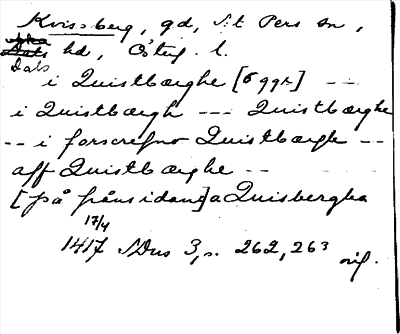 Kvissberg, gd, S:t Pers sn,
Dals hd, Östg. l.
Dals
i Quistbærghe [6 ggr] --
i Quistbærgh --- Quistbærghe
-- i forscrefno Quistbærgh --
aff Quistbærghe --
[på frånsidan] a Quisbergha
17/4
1417 SDns 3, s. 262, 263
orig.